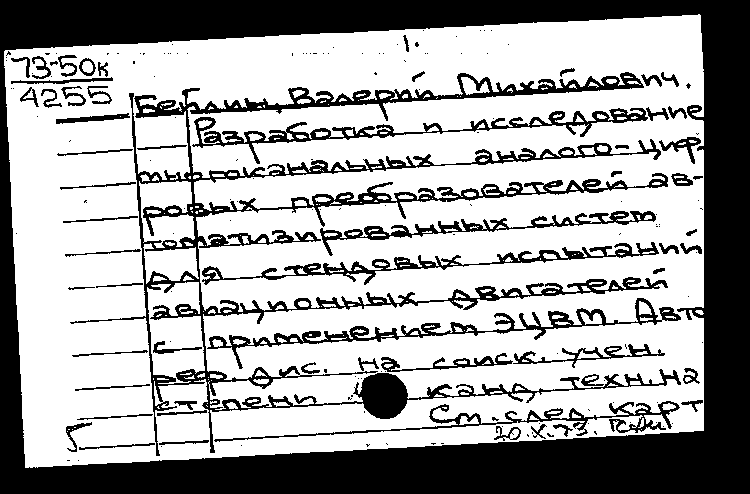 1.
73-50к
4255
Бейлин, Валерий Михайлович.
Разработка и исследование
многоканальных аналого-циф-
ровых преобразователей ав-
томатизированных систем
для стендовых испытаний
авиационных двигателей
с применением ЭЦВМ. Авто
реф. дис. на соиск. учен.
степени канд. техн. на
См. след. карт
20.X.73.